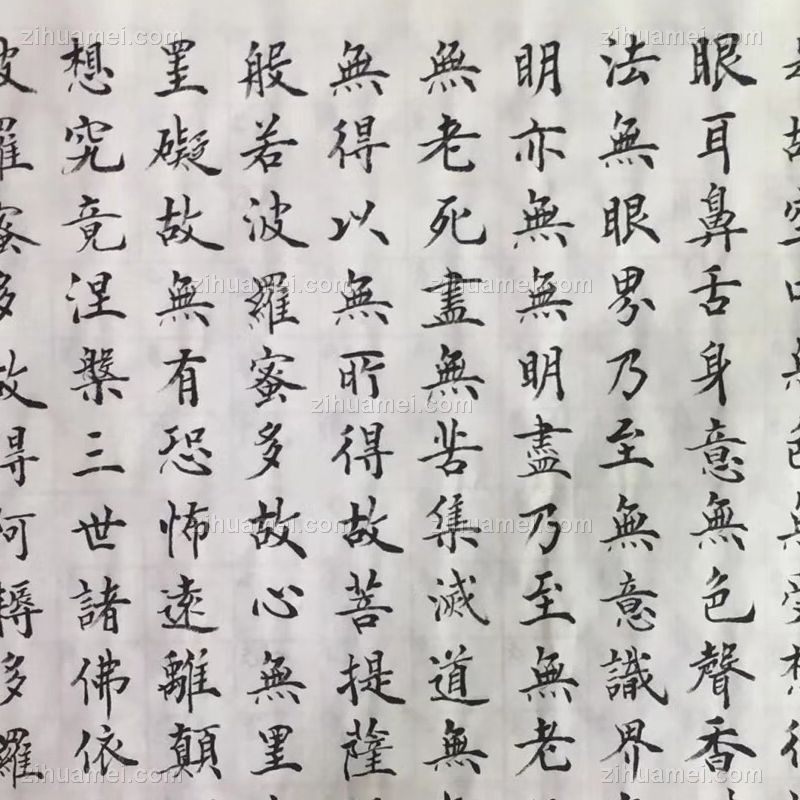 是故空中無色無受想行
眼耳鼻舌身意無色聲香
法無眼界乃至無意識界
明亦無無明盡乃至無老
無老死盡無苦集滅道無
無得以無所得故菩提薩
般若波羅蜜多故心無罣
罣礙故無有恐怖遠離顛
想究竟涅槃三世諸佛依
波羅蜜多故得阿耨多羅
zihuamei.com
zihuamei.com
zihuamei.com
zihuamei.com
zihuamei.com
zihuamei.com
zihuamei.com
zihuamei.com
zihuamei.com
zihuamei.com
zihuamei.com
zihuamei.com
zihuamei.com